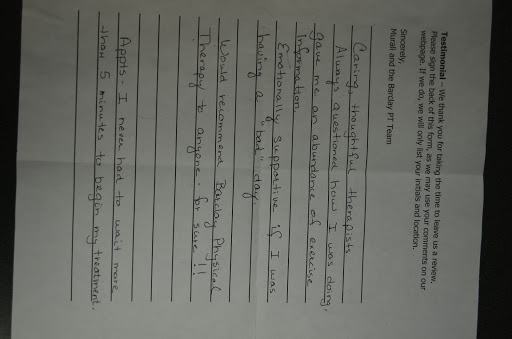 Testimonial – We thank you for taking the time to leave us a review.
Please sign the back of this form, as we may use your comments on our
webpage. If we do, we will only list your initials and location.
Sincerely,
Murali and the Barclay PT Team
Caring, thoughtful therapists
Always questioned how I was doing,
gave me an abundance of exercise
information.
Emotionally supportive if I was
having a "bad" day.
Would recommend Barclay Physical
Therapy to anyone, for sure!!
Appts - I never had to wait more
than 5 minutes to begin my treatment.